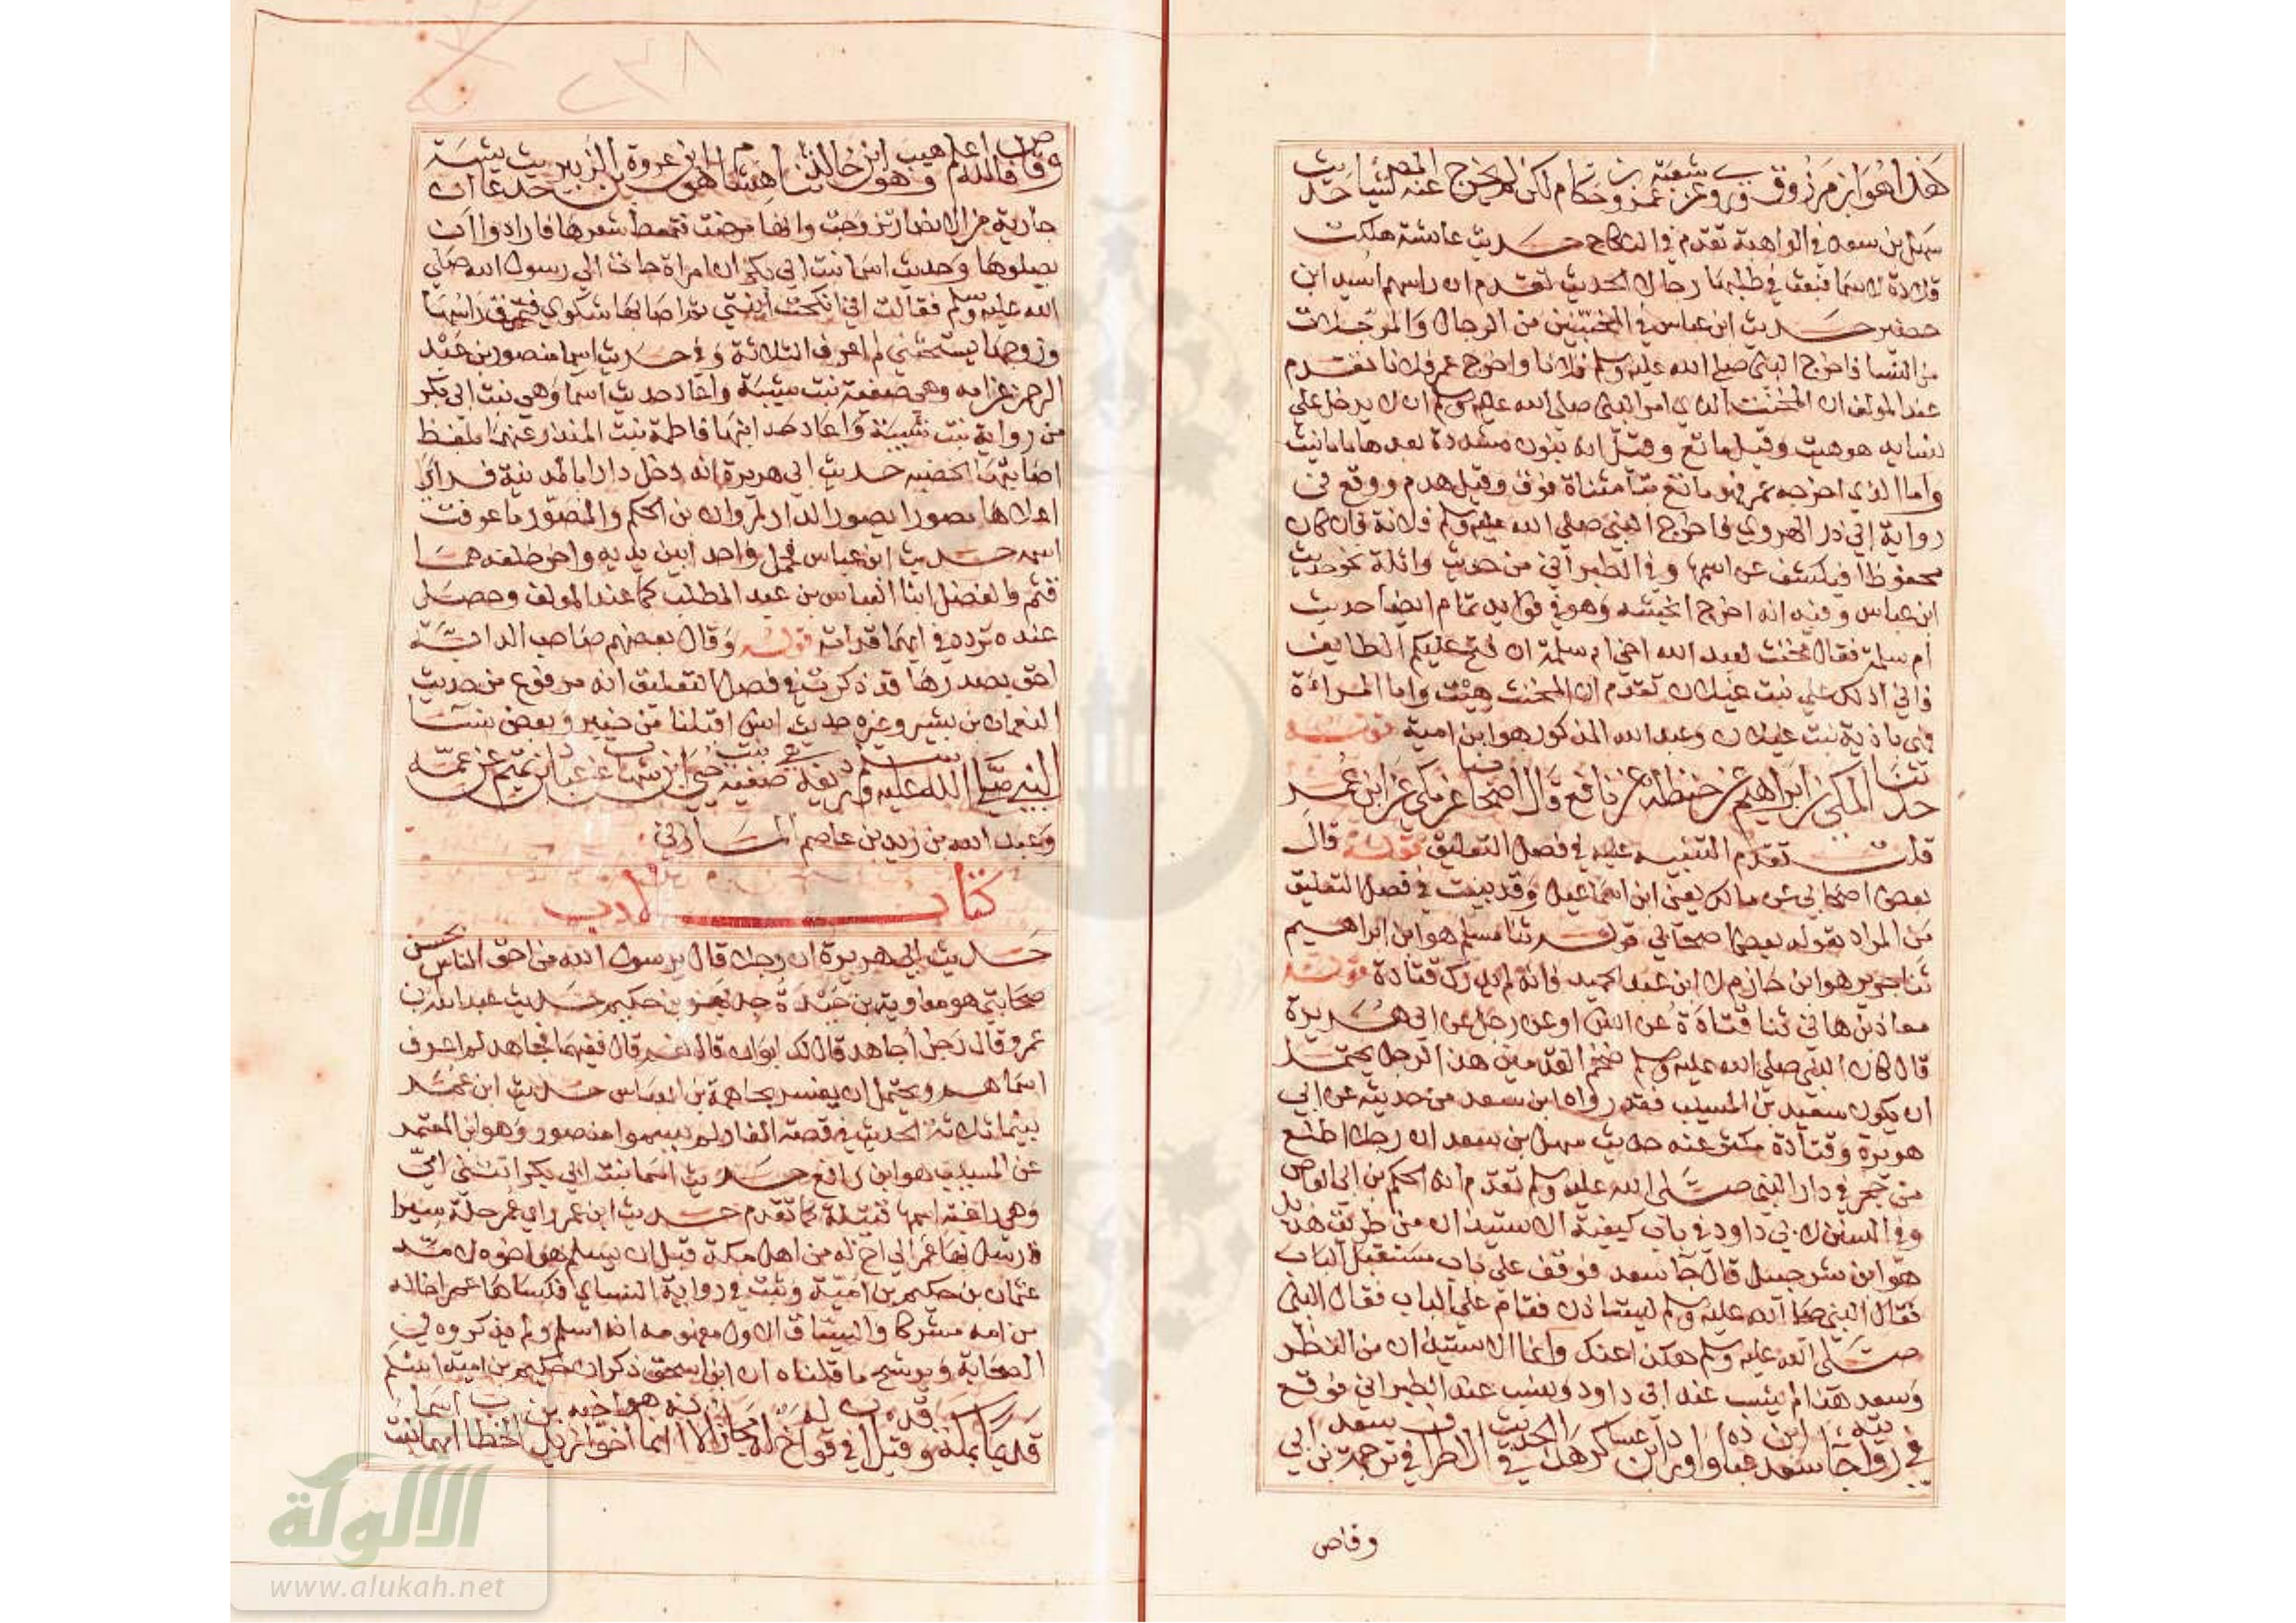 هذا هو ابن مرزوق يروي عن شعبة عن عمرو بن حكام لكن لم يخرج عنه المصنف شيئا حديث
سهل بن سعد في الواهبة تقدم في النكاح حديث عائشة هلكت
قلادة لاسما فبعث في طلبها رجالا الحديث تقدم ان راسهم اسيد ابن
حضير حديث ابن عباس في المخنثين من الرجال والمترجلات
من النسا فاخرج النبي صلى الله عليه وسلم فلانا واخرج عمر فلانا تقدم
عند المولف ان المخنث الذي امر النبي صلى الله عليه وسلم ان لا يدخل على
نسايه هو هيت وقيل ماتع وقيل انه بنون مشددة بعدها
واما الذي اخرجه عمر فهو ماتع بتا مثناة فوق وقيل هدم ووقع في
رواية ابي ذر الهروي فاخرج النبي صلى الله عليه وسلم فلانة فان كان
محفوظا فيكشف عن اسمها وفي الطبراني من حديث واثلة نحو حديث
ابن عباس وفيه انه اخرج انجشه وهو في فوايد تمام ايضا حديث
ام سلمة فقال مخنث لعبد الله اخي ام سلمة ان فتح عليكم الطايف
فاني ادلك على بنت غيلان تقدم ان المخنث هيت واما المراة
فهي باذية بنت غيلان وعبد الله المذكور هو ابن امية قوله
حدثنا المكي بن ابراهيم عن حنظلة عن نافع وقال اصحابنا عن مكي عن ابن عمر
قلت تقدم التنبيه عليه في فصل التعليق قوله قال
بعض اصحابي عن مالك يعني ابن اسماعيل وقد بينت في فصل التعليق
من المراد بقوله بعض اصحابي قوله ثنا مسلم هو ابن ابراهيم
ثنا جرير هو ابن حازم لا ابن عبد الحميد فانه لم يدرك قتادة قوله
معاذ بن هاني ثنا قتادة عن انس او عن رجل عن ابي هريرة
قال كان النبي صلى الله عليه وسلم ضخم القدمين هذا الرجل يحتمل
ان يكون سعيد بن المسيب فقد رواه ابن سعد من حديثه عن ابي
هريرة وقتادة مكثر عنه حديث سهل بن سعد ان رجلا اطلع
من جحر في دار النبي صلى الله عليه وسلم تقدم انه الحكم بن ابي العاص
وفي السنن لابي داود في باب كيفية الاستيذان من طريق هذيل
هو ابن شرحبيل قال جا سعد فوقف على باب مستقبل الباب
فقال النبي صلى الله عليه وسلم ليستاذن فقام على الباب فقال النبي
صلى الله عليه وسلم هكذا عنك وانما الاستيذان من النظر
وسعد هذا لم ينسب عند ابي داود ونسب عند الطبراني فوقع
في روايته جا سعد بن عبادة واورد ابن عساكر هذا الحديث في الاطراف في ترجمة سعد بن ابي
وقاص
وقاص فالله اعلم وهيب هو ابن خالد ثنا هشام هو ابن عروة بن الزبير حديث عائشة ان
جارية من الانصار تزوجت وانها مرضت فتمعط شعرها فارادوا ان
يصلوها وحديث اسما بنت ابي بكر ان امراة جات الى رسول الله صلى
الله عليه وسلم فقالت اني انكحت ابنتي ثم اصابها شكوى فتمزق راسها
وزوجها يستحثني لم اعرف الثلاثة وفي حديث اسما منصور بن عبد
الرحمن عن امه وهي صفية بنت شيبة واعاد حديث اسما وهي بنت ابي بكر
من رواية بنت شيبة واعاد بعد ابنها فاطمة بنت المنذر عنها بلفظ
اصابتها الحصبه حديث ابي هريرة انه دخل دارا بالمدينة فراى
اعلاها مصورا يصور الدار لمروان بن الحكم والمصور ما عرفت
اسمه حديث ابن عباس فحمل واحدا بين يديه واخر خلفه هما
قثم والفضل ابنا العباس بن عبد المطلب كما عند المولف وحصل
عنده تردد في ايهما قدامه قوله وقال بعضهم صاحب الدابة
احق بصدرها قد ذكرت في فصل التعليق انه مرفوع من حديث
النعمان بن بشير وغيره حديث انس اقبلنا من خيبر وبعض نسا
النبي صلى الله عليه وسلم رديفه هي صفية بنت حيي ابن شهاب عن عباد بن تميم عن عمه
وعبد الله بن زيد بن عاصم المازني
كتاب الادب
حديث ابي هريرة ان رجلا قال يرسول الله من احق الناس بحسن
صحابتي هو معاوية بن حيدة جد بهز بن حكيم حديث عبد الله بن
عمرو قال رجل اجاهد قال لك ابوان قال نعم قال ففيهما فجاهد لم اعرف
اسماهم ويحتمل ان يفسر بجاهمة بن العباس حديث ابن عمر
بينما ثلاثة الحديث في قصة الغار لم يسموا منصور وهو ابن المعتمر
عن المسيب هو ابن رافع حديث اسما بنت ابي بكر اتتني امي
وهي راغبة اسمها قتيلة كما تقدم حديث ابن عمر راى عمر حلة سيرا
فارسل بها عمر الى اخ له من اهل مكة قبل ان يسلم هو اخوه لامه
عثمان بن حكيم بن امية وثبت في رواية النساي فكساها عمر اخا له
من امه مشركا والسياق الاول مفهومه انه اسلم ولم يذكروه في
الصحابة ويرشح ما قلناه ان ابن اسحق ذكر ان حكيم بن امية اسلم
قديما بمكة وقيل في قوله اخ له مجاز لانه انما هو اخو اخيه زيد بن الخطاب امهما اسما بنت
الالوكة
www.alukah.net